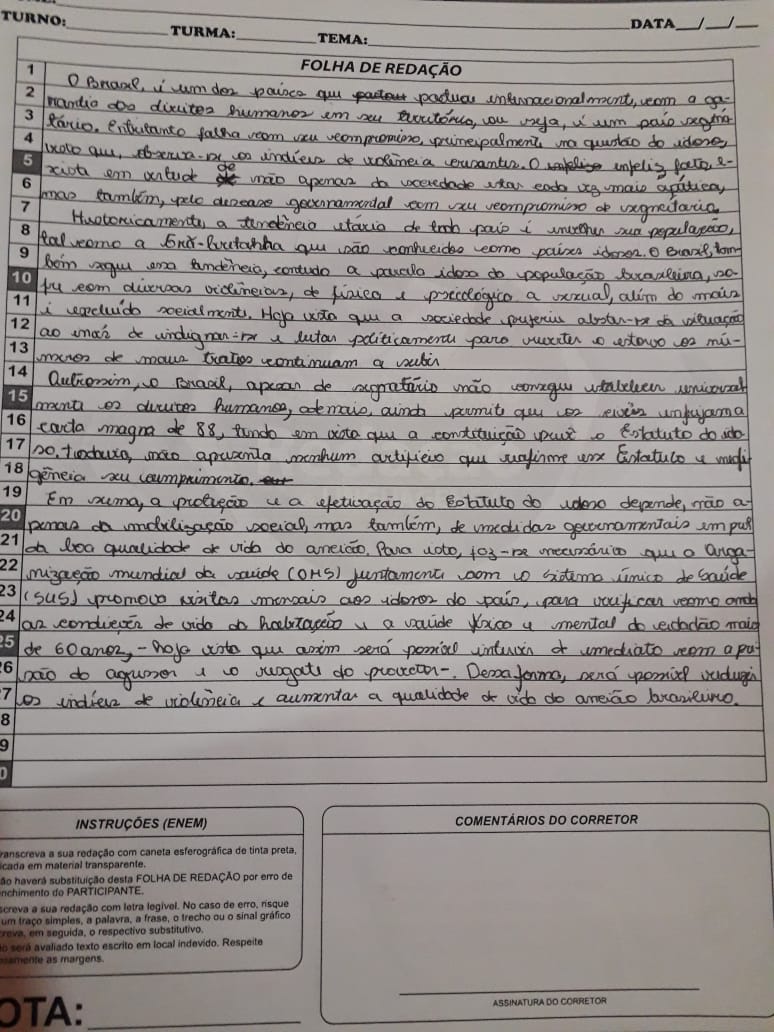 TURNO: TURMA: TEMA: DATA / /
FOLHA DE REDAÇÃO
1 O Brasil, é um dos países que pactua internacionalmente, com a ga-
2 rantia dos direitos humanos em seu território, ou seja, é um país signa-
3 tário. Entretanto falha com seu compromisso, principalmente na questão do idoso,
4 visto que, observa-se os indíces de violência crescentes. O infeliz fato, e-
5 xista em virtude de não apenas da sociedade estar cada vez mais apática,
6 mas também, pelo descaso governamental com seu compromisso de
7 Historicamente, a tendência etária de todo país é envelher sua população,
8 tal como a Grã-Bretanha que são conhecidos como países idosos. O Brasil, tam-
9 bém segue essa tendência, contudo a parcela idosa da população brasileira, so-
10 fre com diversas violências, de física e psicológica a sexual, além do mais
11 é excluído socialmente. Haja vista que a sociedade preferiu abster-se da situação
12 ao envéz de indignar-se e lutar politicamente para reverter o estorvo os nú-
13 meros de maus tratos continuam a subir
14 Outrossim, o Brasil, apesar de signatário não consegue estabelecer universal
15 mente os direitos humanos, ademais, ainda permite que os
16 carta magna de 88, tendo em vista que a constituição prevê o Estatuto do ido
17 so, todavia, não apresenta nenhum artifício que reafirme esse Estatuto e
18 gência seu cumprimento.
19 Em suma, a proteção e a efetivação do Estatuto do idoso depende, não a-
20 penas da mobilização social, mas também, de medidas governamentais em pról
21 da boa qualidade de vida do ancião. Para isto, faz-se necessário que a Orga-
22 nização mundial da saúde (OMS) juntamente com o sistema único de Saúde
23 (SUS) promova visitas mensais aos idosos do país, para verificar como anda
24 as condições de vida da habitação e a saúde física e mental do cidadão mais
25 de 60 anos, - haja vista que assim será possível intervir de imediato com a pu-
26 nição do agressor e o resgate do protetor-. Dessa forma, será possível reduzir
27 os indíces de violência e aumentar a qualidade de vida do ancião brasileiro.
8
9
0
INSTRUÇÕES (ENEM)
ranscreva a sua redação com caneta esferográfica de tinta preta,
icada em material transparente.
ão haverá substituição desta FOLHA DE REDAÇÃO por erro de
nchimento do PARTICIPANTE.
screva a sua redação com letra legível. No caso de erro, risque
um traço simples, a palavra, a frase, o trecho ou o sinal gráfico
reva, em seguida, o respectivo substitutivo.
o será avaliado texto escrito em local indevido. Respeite
samente as margens.
COMENTÁRIOS DO CORRETOR
ASSINATURA DO CORRETOR
OTA: